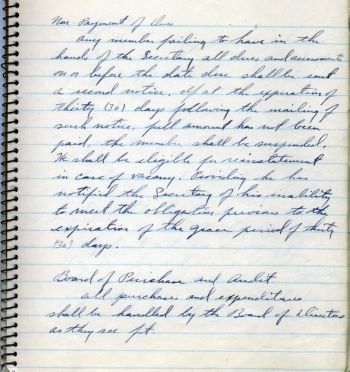 Non Payment of Dues
Any member failing to have in the
hands of the Secretary all dues and assessments
on or before the date due shall be sent
a second notice. If at the expiration of
thirty (30) days following the mailing of
such notice, full amount has not been
paid, the member shall be suspended.
He shall be eligible for reinstatement
in case of vacancy. Providing he has
notified the Secretary of his inability
to meet the obligation previous to the
expiration of the grace period of thirty
(30) days.
Board of Purchase and Audit
All purchases and expenditures
shall be handled by the Board of Directors
as they see fit.